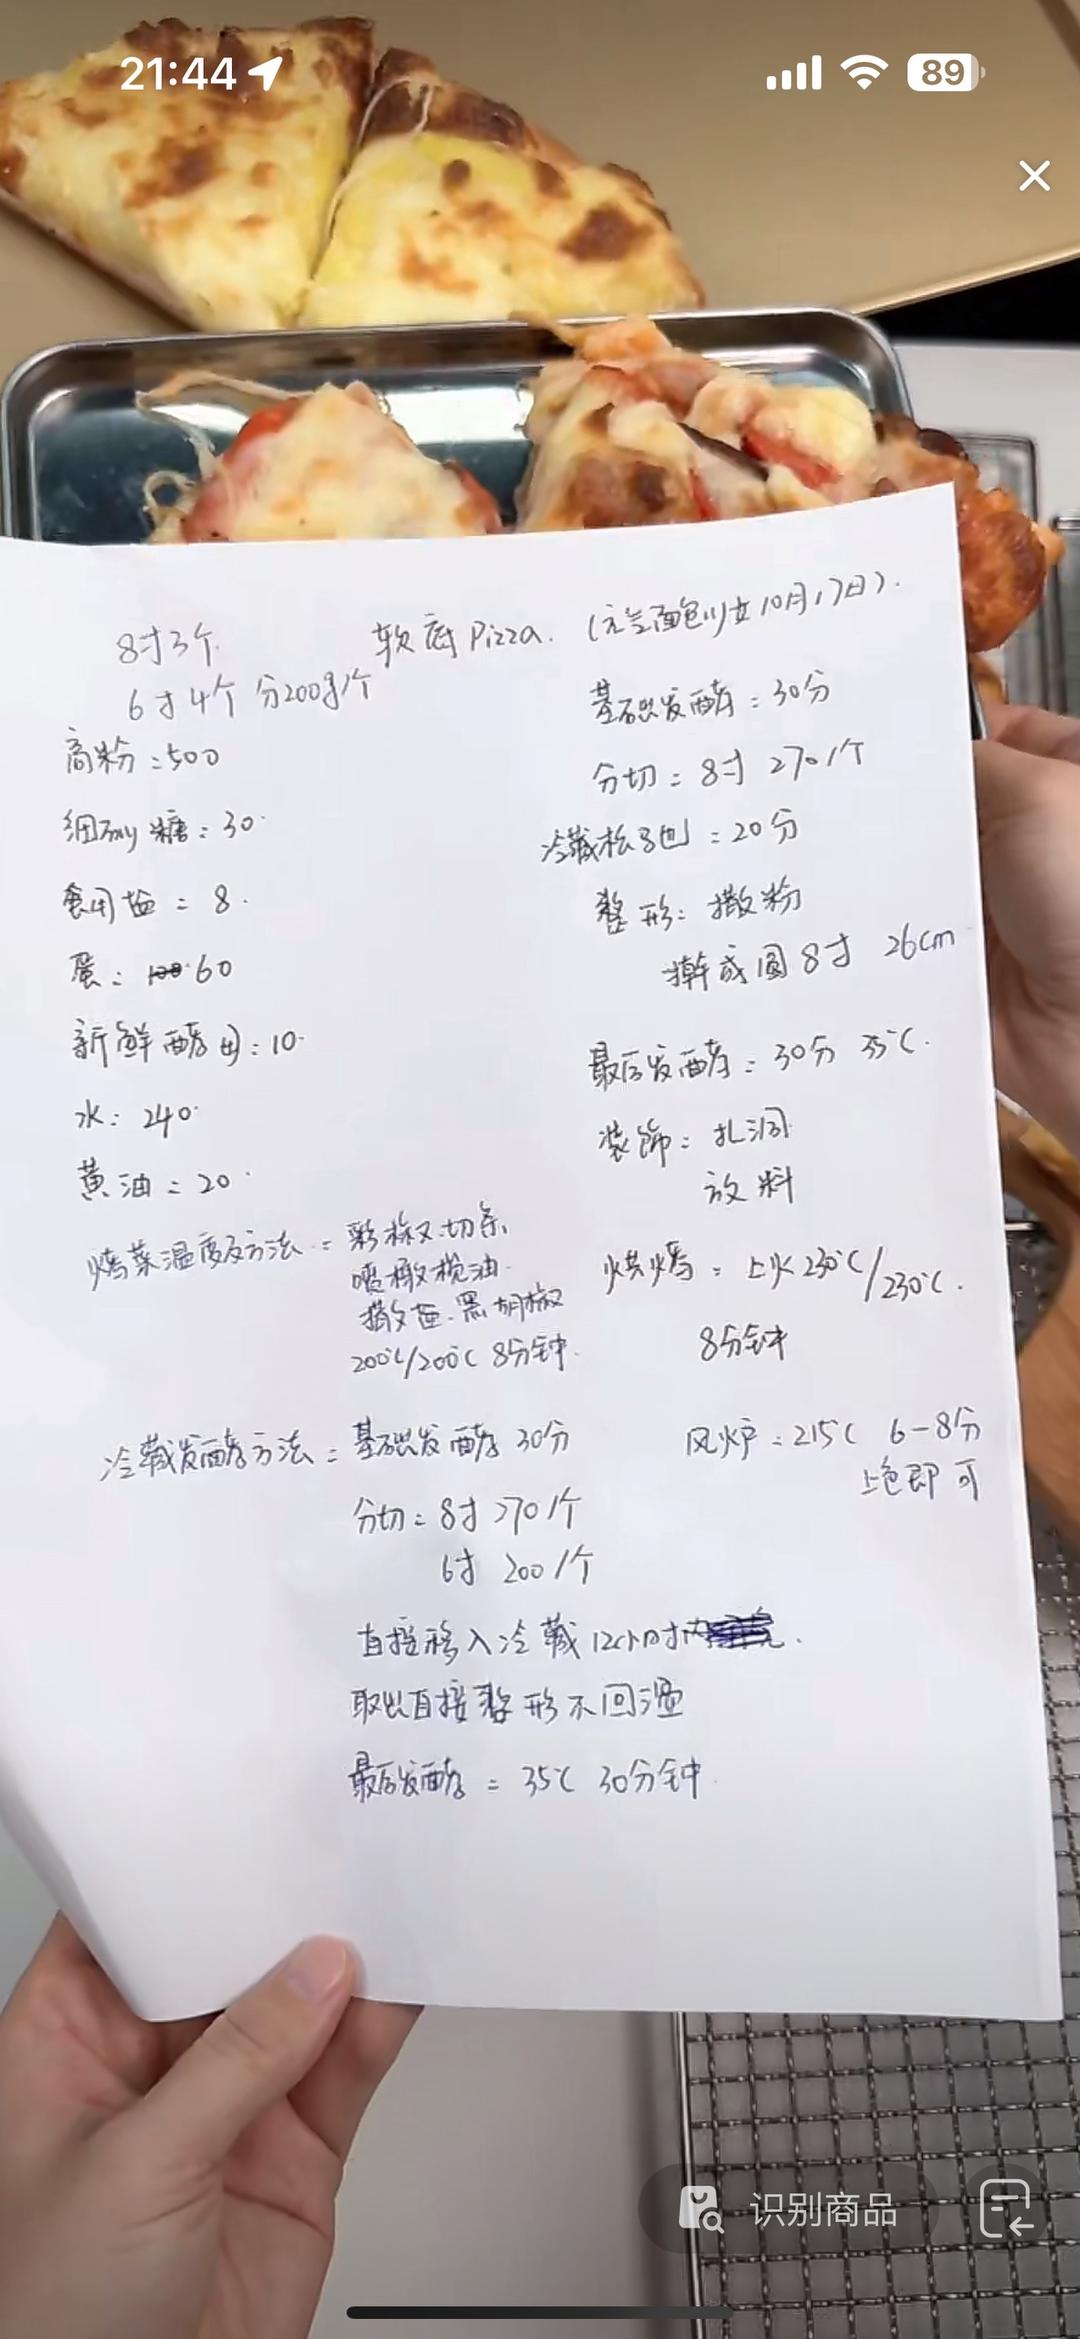 21:44
89
8寸3个
6寸4个 分200g/个
软底Pizza.
10月17日).
高粉:500
细砂糖:30
食用盐:8.
蛋:60
新鲜酵母:10
水:240
黄油:20
烤菜温度及方法:彩椒切条
喷橄榄油
撒盐.黑胡椒
200℃/200℃ 8分钟.
基础发酵:30分
分切:8寸 270/个
冷藏松弛:20分
整形:撒粉
擀成圆8寸 26cm
最后发酵:30分 35℃.
装饰:扎洞
放料
烘烤:上火230℃/230℃.
8分钟
风炉:215℃ 6-8分
上色即可
冷藏发酵方法:基础发酵 30分
分切:8寸 270/个
6寸 200/个
直接移入冷藏12小时内
取出直接整形不回温
最后发酵:35℃ 30分钟
识别商品